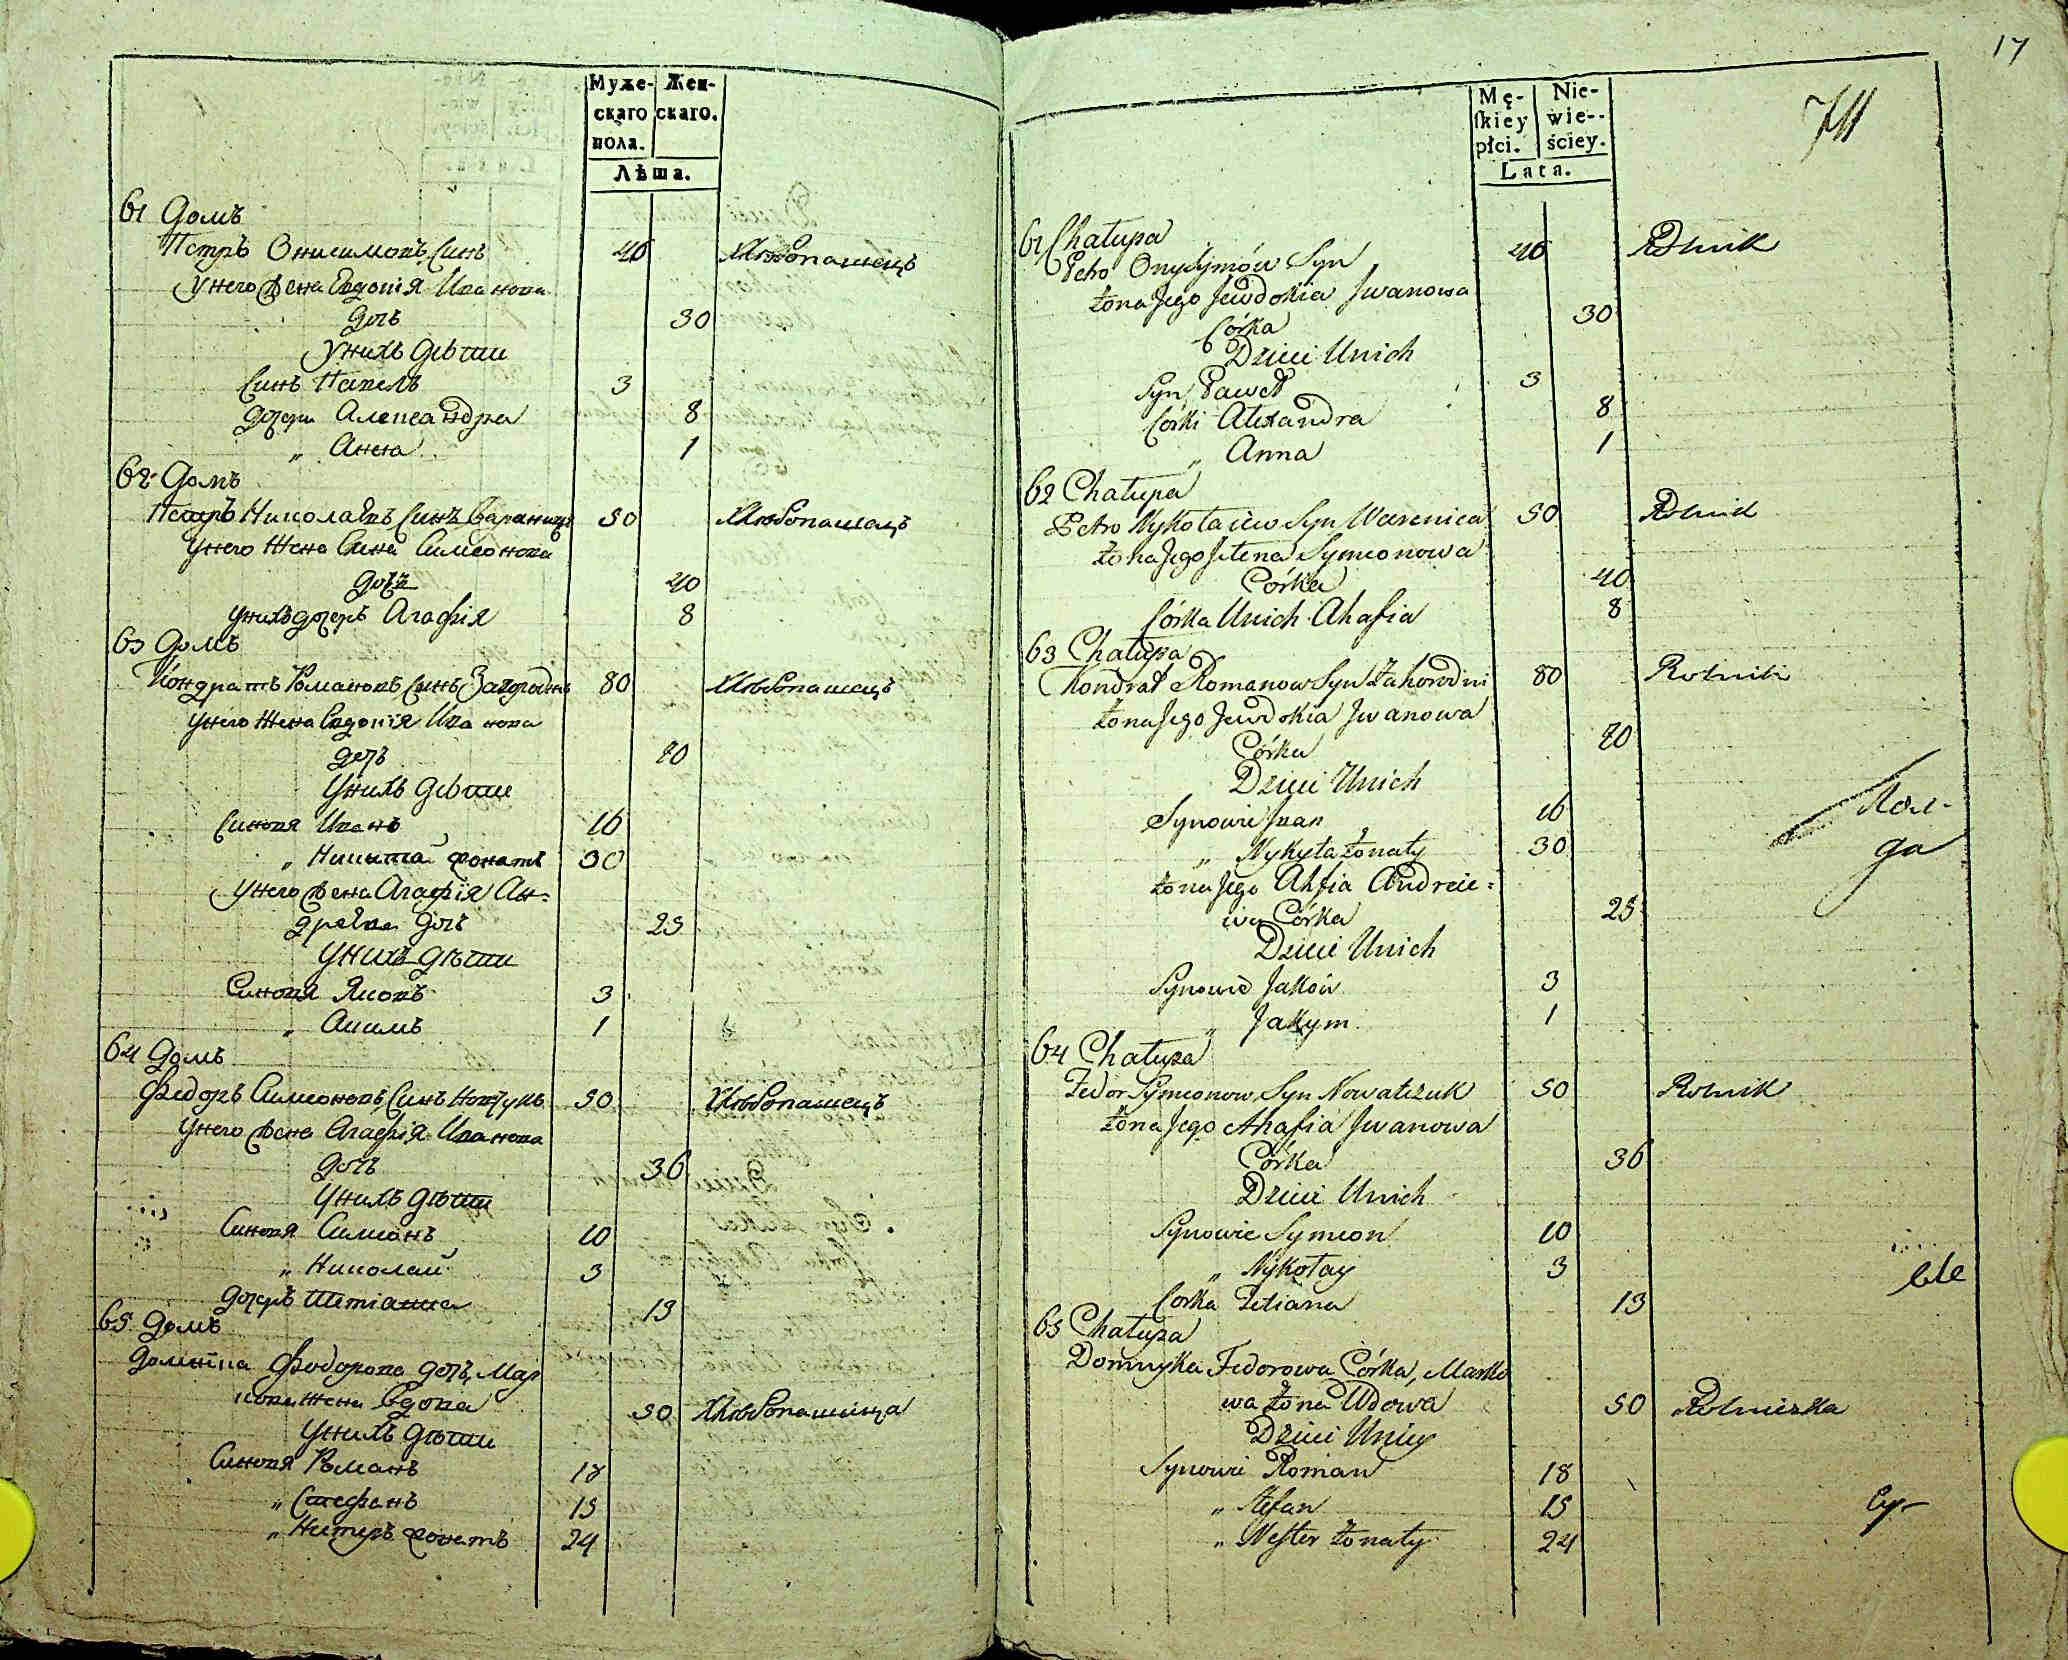 Муже-
скаго
пола.
Жен-
скаго.
Лѣта.
61 Домъ
Петръ Онисимовъ Синъ 46 Хлѣбопашецъ
У него Жена Евдокія Иванова
дочь 30
У нихъ дѣти
Синъ Павелъ 3
дочери Александра 8
„ Анна 1
62 Домъ
Петръ Николаевъ Синъ Вараница 50 Хлѣбопашецъ
У него Жена Елена Симеонова
дочь 40
У нихъ дочерь Агафія 8
63 Домъ
Кондратъ Романовъ Синъ Загородны 80 Хлѣбопашецъ
У него Жена Евдокія Иванова
дочь 70
У нихъ дѣти
Синовя Иванъ 16
„ Никита Жонатъ 30
У него Жена Агафія Ан-
дреева дочь 25
У нихъ дѣти
Синовя Яковъ 3
„ Акимъ 1
64 Домъ
Федоръ Симеоновъ Синъ 50 Хлѣбопашецъ
У него Жена Агафія Иванова
дочь 36
У нихъ дѣти
Синовя Симионъ 10
„ Николай 3
дочерь Тетіанна 13
65 Домъ
Домникa Федорова дочь, Мар
кова Жена Вдова 50 Хлѣбопашица
У нихъ дѣти
Синовя Романъ 18
„ Стефанъ 15
„ Нестеръ Жонатъ 24
17
Mę-
ſkiey
płci.
Nie-
wie--
ściey.
Lata.
61 Chałupa
Petro Onysymów Syn 46 Rolnik
Żona Jego Jewdokia Jwanowa
Córka 30
Dzieci Unich
Syn Paweł 3
Córki Alexandra 8
„ Anna 1
62 Chałupa
Petro Nykołaiew Syn Warenica 50 Rolnik
Żona Jego Jełena Symeonowa
Córka 40
Córka Unich Ahafia 8
63 Chałupa
Kondrat Romanow Syn Zahorodni 80 Rolnik
Żona Jego Jewdokia Jwanowa
Córka 70
Dzieci Unich
Synowie Jwan 16
„ Nykyta Żonaty 30
Żona Jego Ahfia Andreie-
wa Córka 25
Dzieci Unich
Synowie Jaków 3
„ Jakym 1
64 Chałupa
Fedor Symeonow Syn Nowalczuk 50 Rolnik
Żona Jego Ahafia Jwanowa
Córka 36
Dzieci Unich
Synowie Symeon 10
„ Nykołay 3
Corka Tetiana 13
65 Chałupa
Domnyka Fedorowa Córka, Marko
wa Żona Wdowa 50 Rolniczka
Dzieci Unicy
Synowie Roman 18
„ Stefan 15
„ Nester Żonaty 24